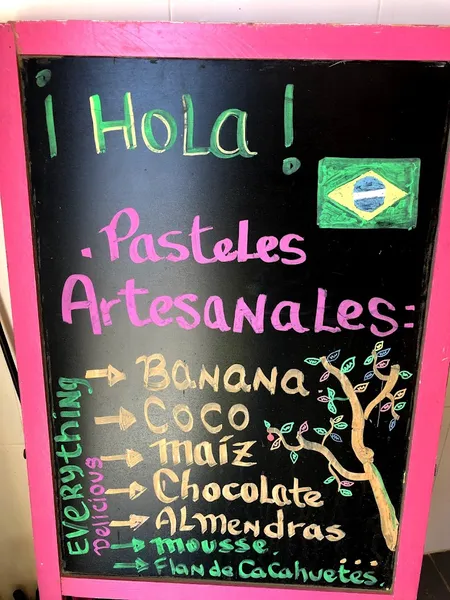 ¡Hola!
. Pasteles
Artesanales:
Everything
Delicious
→ Banana
→ Coco
→ Maíz
→ Chocolate
→ Almendras
→ mousse.
→ Flan de Cacahuetes...